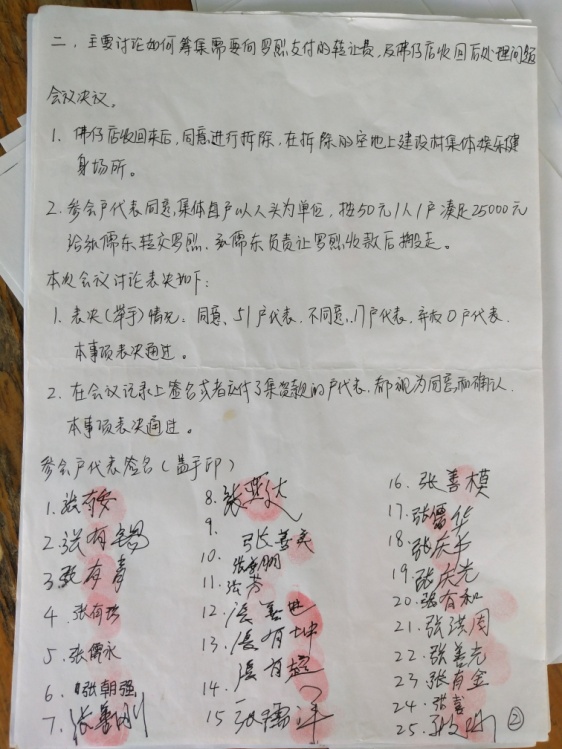 二，主要讨论如何筹集需要向罗烈支付的转让费，及佛仔店收回后处理问题
会议决议。
1. 佛仔店收回来后，同意进行拆除，在拆除的空地上建设村集体娱乐健
身场所。
2. 参会户代表同意，集体自户以人头为单位，按50元/人/户凑足25000元
给张儒东转交罗烈，张儒东负责让罗烈收款后搬走。
本次会议讨论表决如下：
1. 表决（举手）情况：同意、51户代表，不同意、17户代表，弃权0户代表，
本事项表决通过。
2. 在会议记录上签名或者交付了集资款的户代表，都视为同意和确认，
本事项表决通过。
参会户代表签名（盖手印）
1. 张有安
2. 张有锡
3. 张有青
4. 张有
5. 张儒永
6. 张朝强
7. 张善刚
8. 张
9. 张善
10. 张 明
11. 张芳
12. 张善
13. 张有坤
14. 张有超
15. 张儒
16. 张善模
17. 张儒华
18. 张庆
19. 张庆光
20. 张有和
21. 张洪周
22. 张善光
23. 张有金
24. 张喜
25.
②